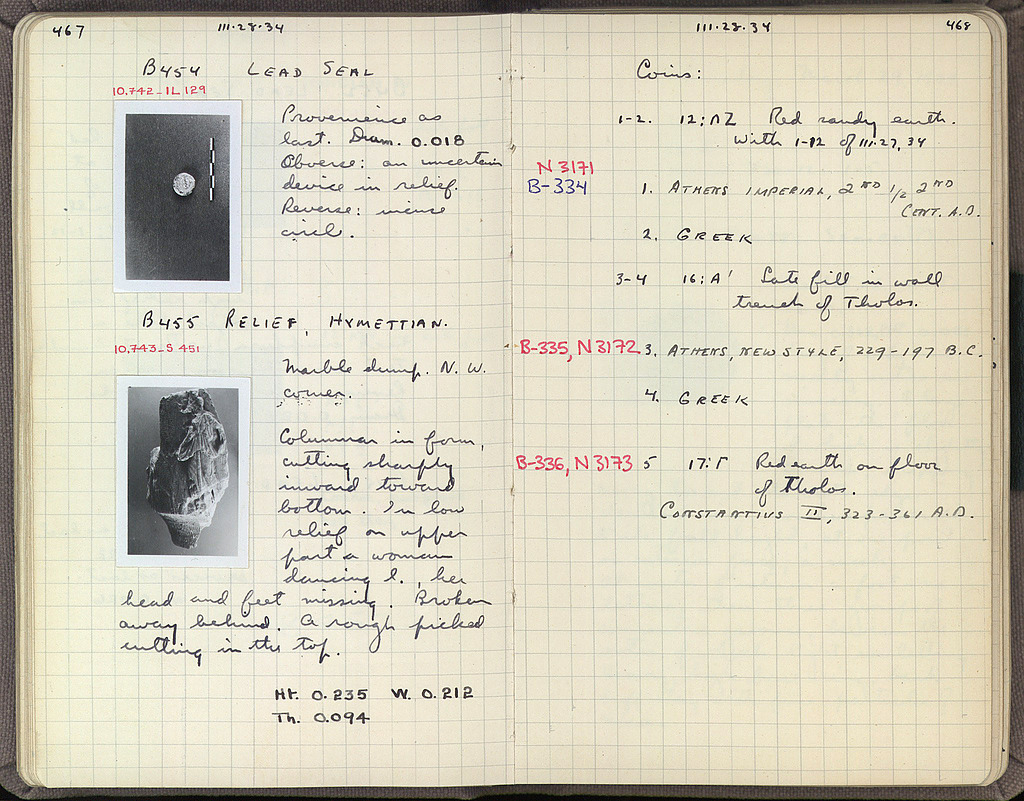 467
III·28·34
B454 LEAD SEAL
10,742-IL 129
Provenience as
last. Diam. 0.018
Obverse: an uncertain
device in relief.
Reverse: incuse
circle.
B455 RELIEF, HYMETTIAN.
10,743-S 451
Marble dump. N. W.
corner.
Columnar in form,
cutting sharply
inward toward
bottom. In low
relief on upper
part a woman
dancing l., her
head and feet missing. Broken
away behind. A rough picked
cutting in the top.
Ht. 0.235 W. 0.212
Th. 0.094
III·28·34
468
Coins:
1-2. 12:ΛΖ Red sandy earth.
With 1-12 of III·27,34
N 3171
B-334 1. ATHENS IMPERIAL, 2ND 1/2 2ND
CENT. A.D.
2. GREEK
3-4 16:Α' Late fill in wall
trench of Tholos.
B-335, N 3172 3. ATHENS, NEW STYLE, 229-197 B.C.
4. GREEK
B-336, N 3173 5 17:Γ Red earth on floor
of Tholos.
CONSTANTIUS II, 323-361 A.D.